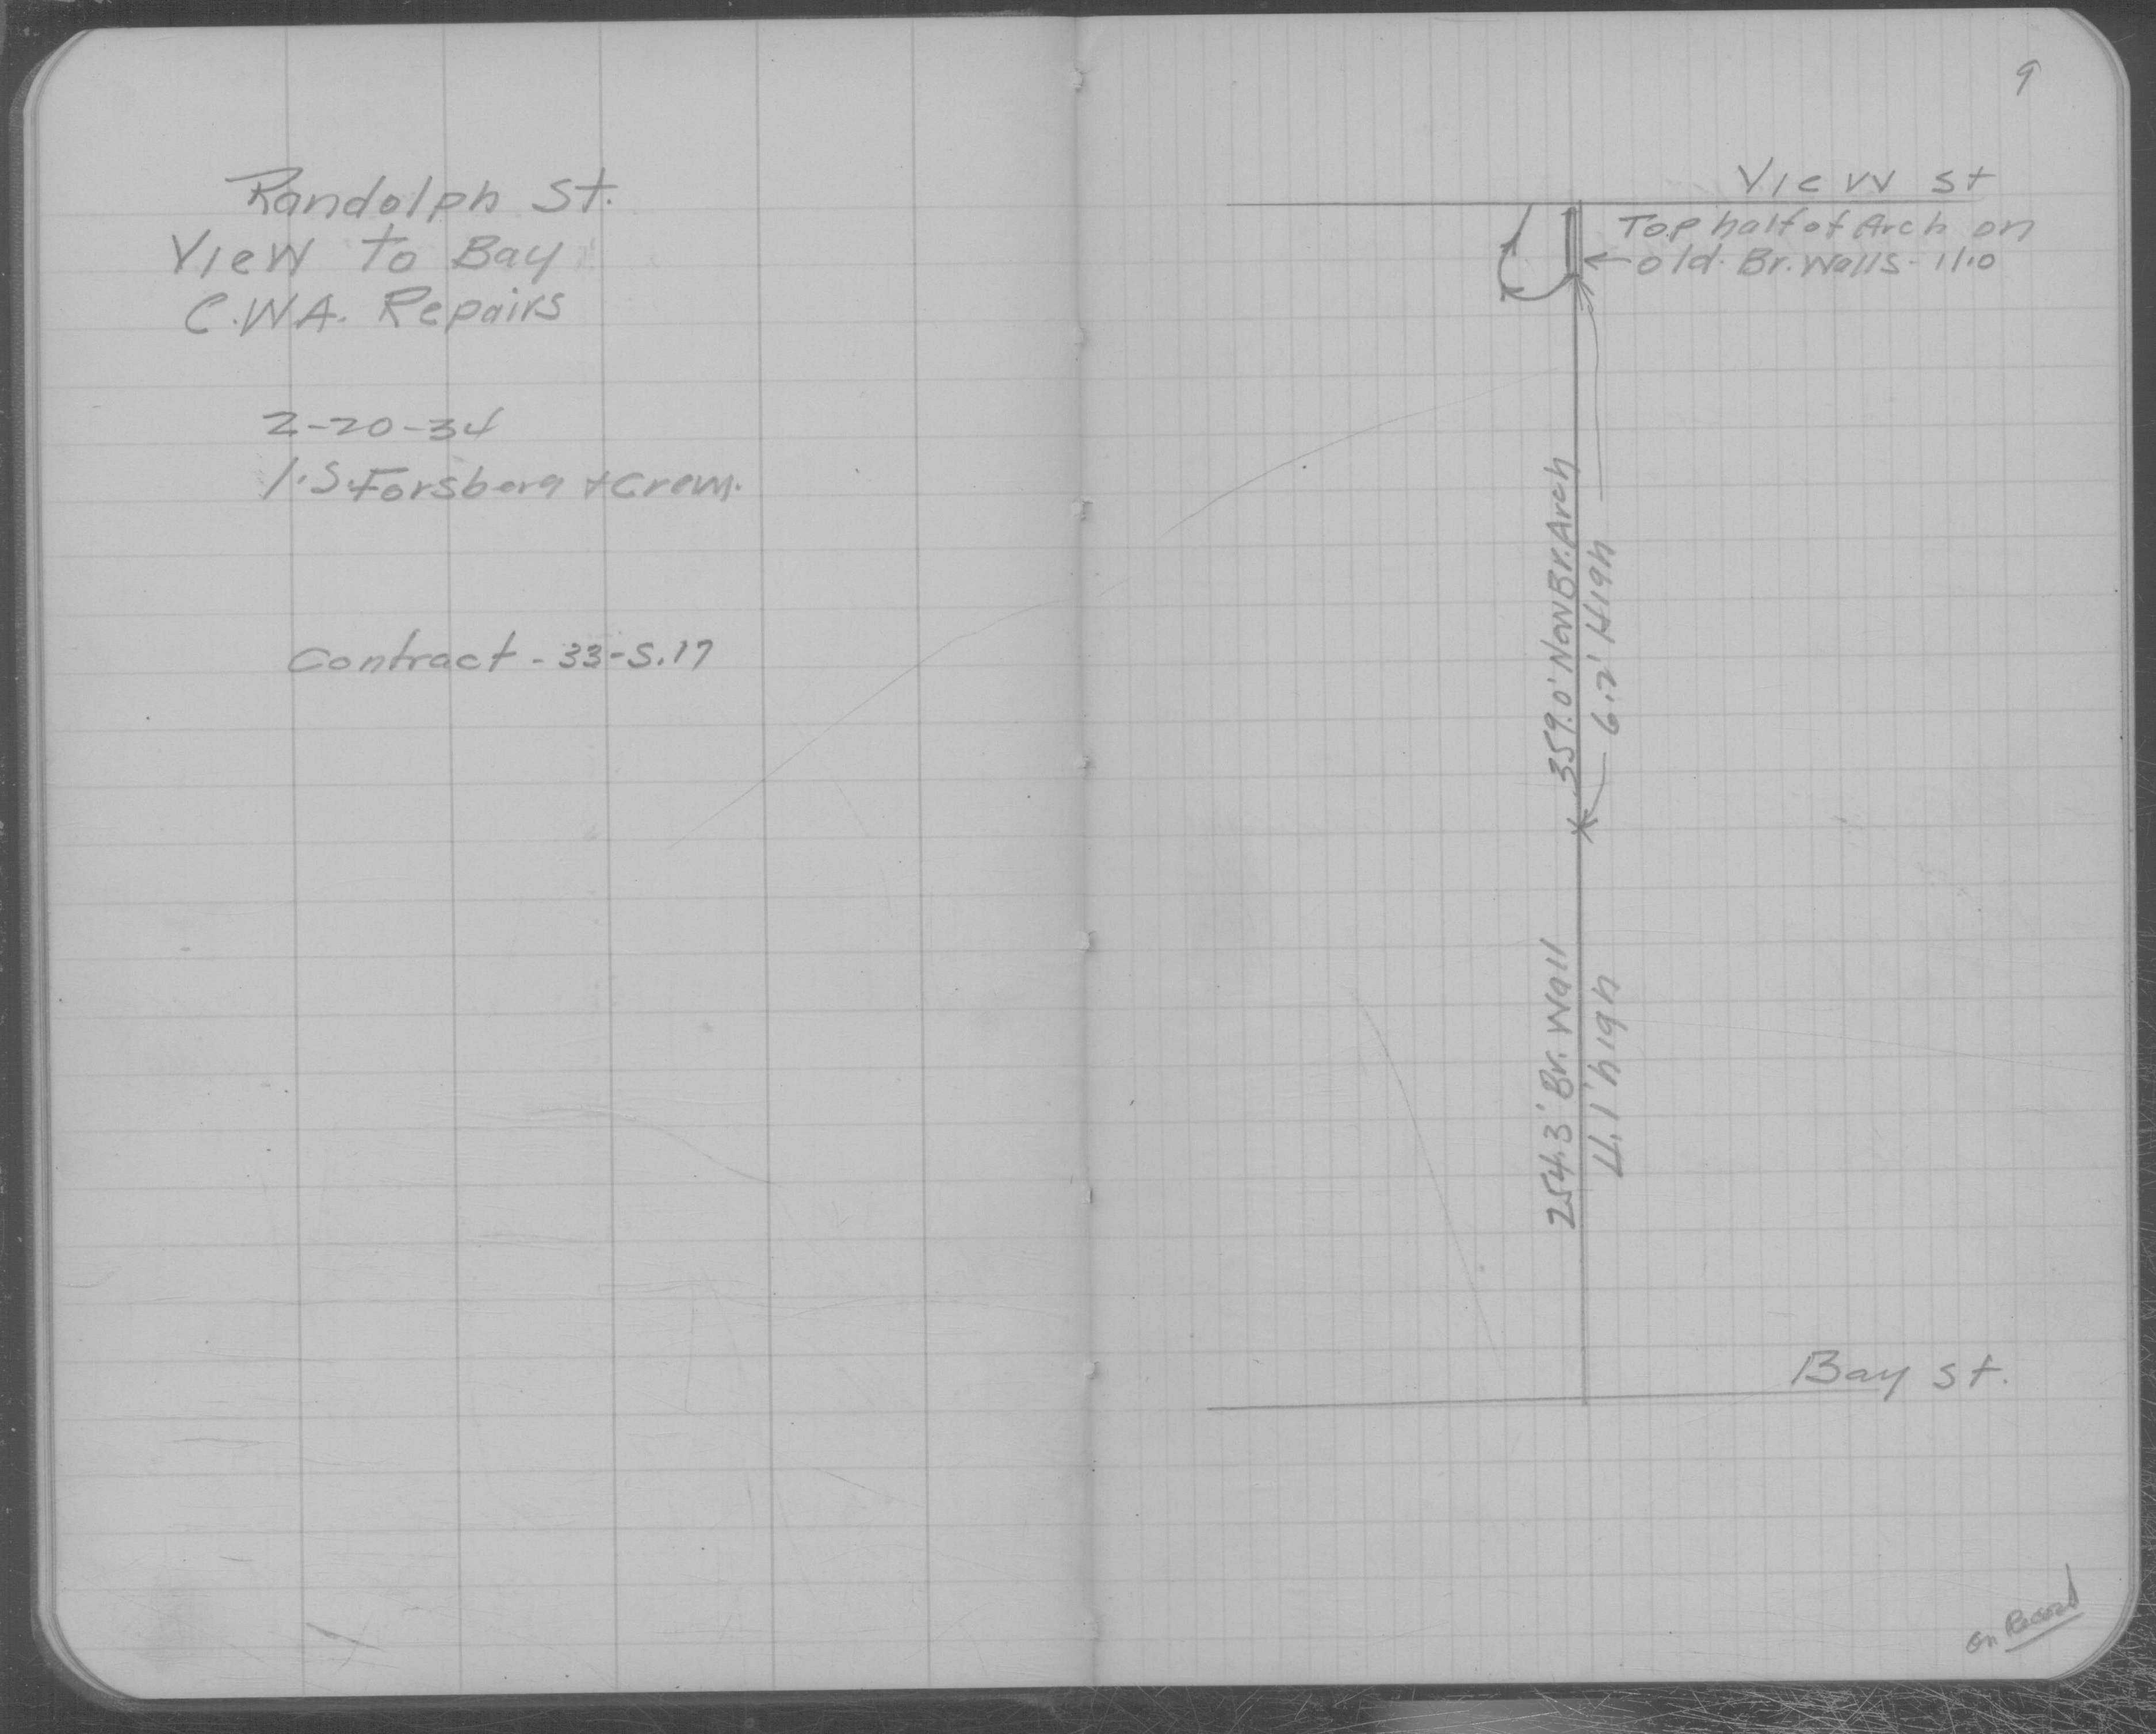 Randolph St.
View to Bay
C.W.A. Repairs
2-20-34
I.S. Forsberg + Crew.
Contract - 33-S.17
9
View st
Top half of Arch on
old Br. Walls - 11.0
359.0' New Br. Arch
6.2' High
254.3' Br. Wall
4.1' high
Bay st.
on Record